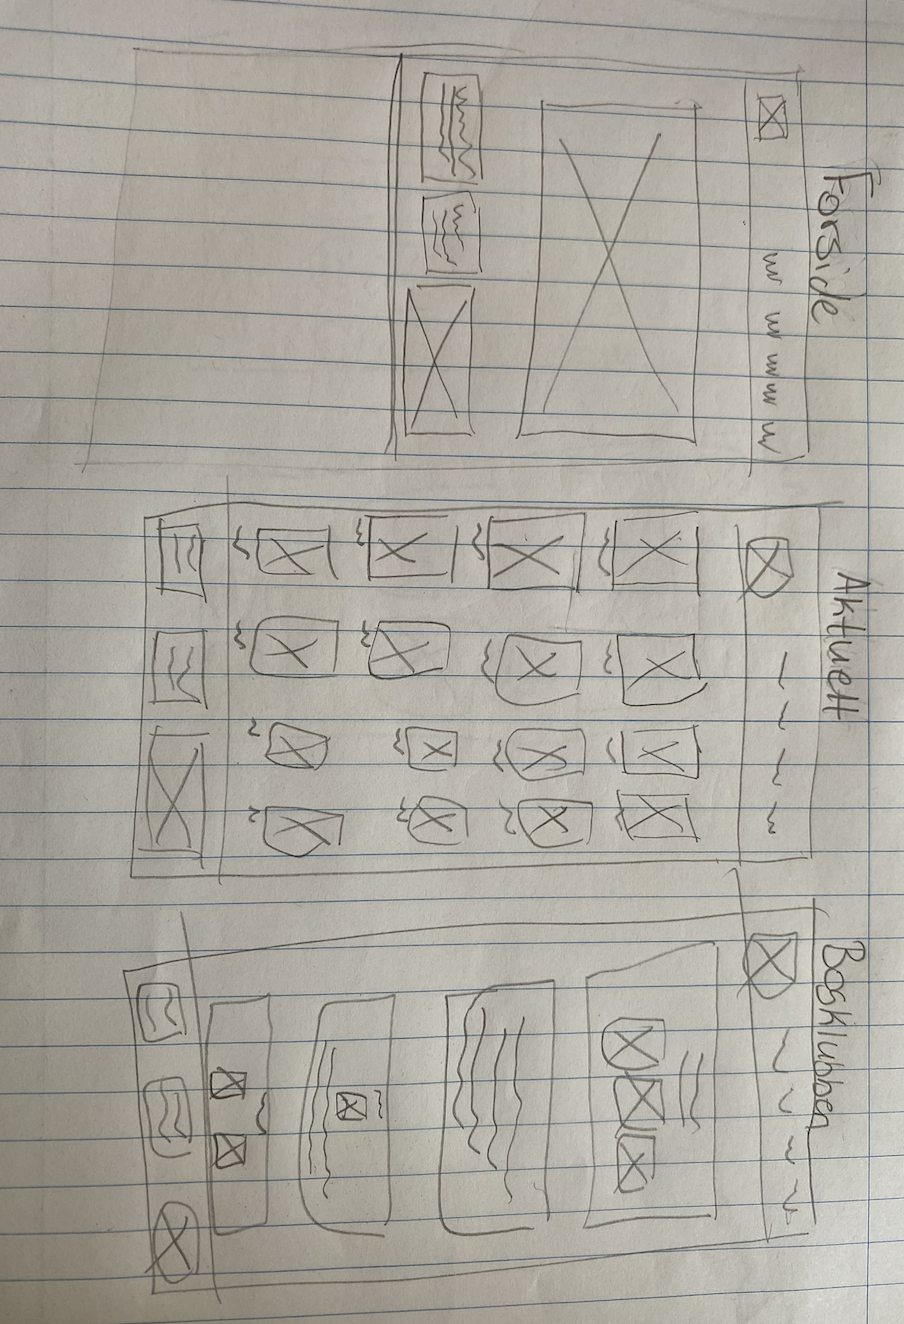 Forside
Aktuelt
Bogklubben